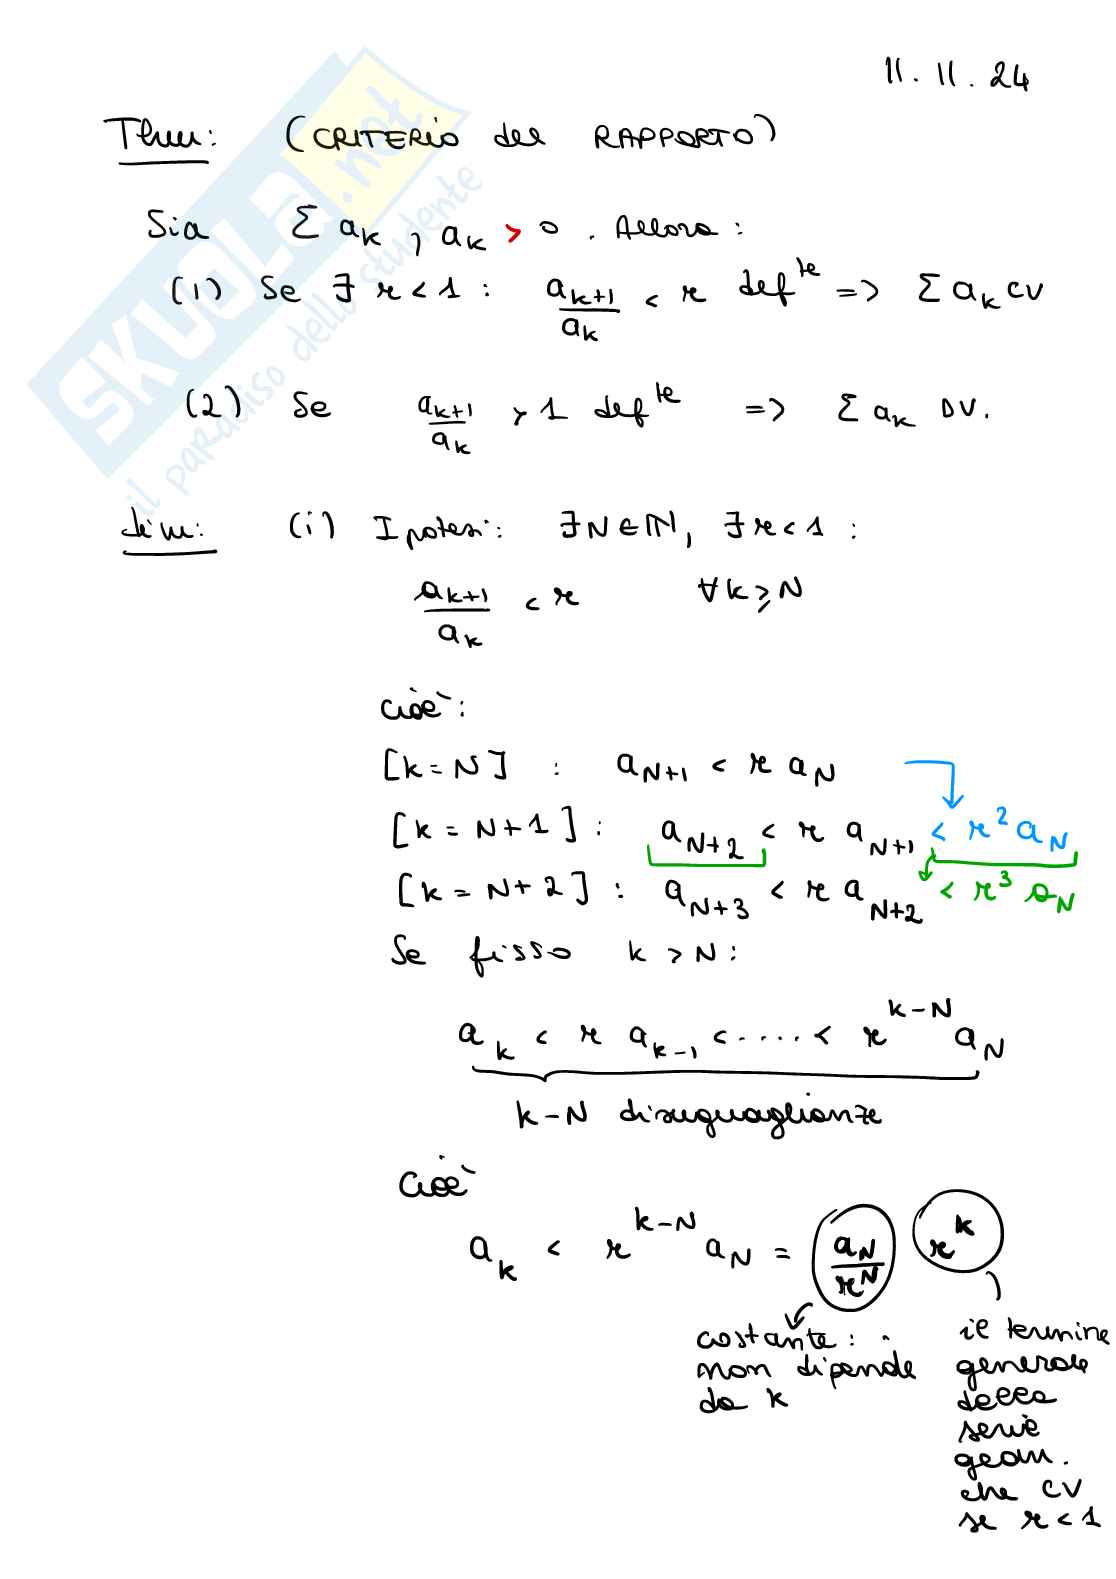 11.11.24
Thm: (CRITERIO del RAPPORTO)
Sia Σ a_k, a_k > 0. Allora:
(1) Se ∃ r < 1 : a_{k+1}/a_k < r def^{te} => Σ a_k CV
(2) Se a_{k+1}/a_k > 1 def^{te} => Σ a_k DV.
dim: (i) Ipotesi: ∃ N ∈ ℕ, ∃ r < 1 :
a_{k+1}/a_k < r ∀ k ≥ N
cioè:
[k = N] : a_{N+1} < r a_N
[k = N+1] : a_{N+2} < r a_{N+1} < r^2 a_N
[k = N+2] : a_{N+3} < r a_{N+2} < r^3 a_N
Se fisso k > N:
a_k < r a_{k-1} < ..... < r^{k-N} a_N
k-N disuguaglianze
Cioè
a_k < r^{k-N} a_N = a_N/r^N r^k
costante:
non dipende
da k
il termine
generale
della
serie
geom.
che CV
se r < 1
SKUOLA.net
il paradiso dello studente